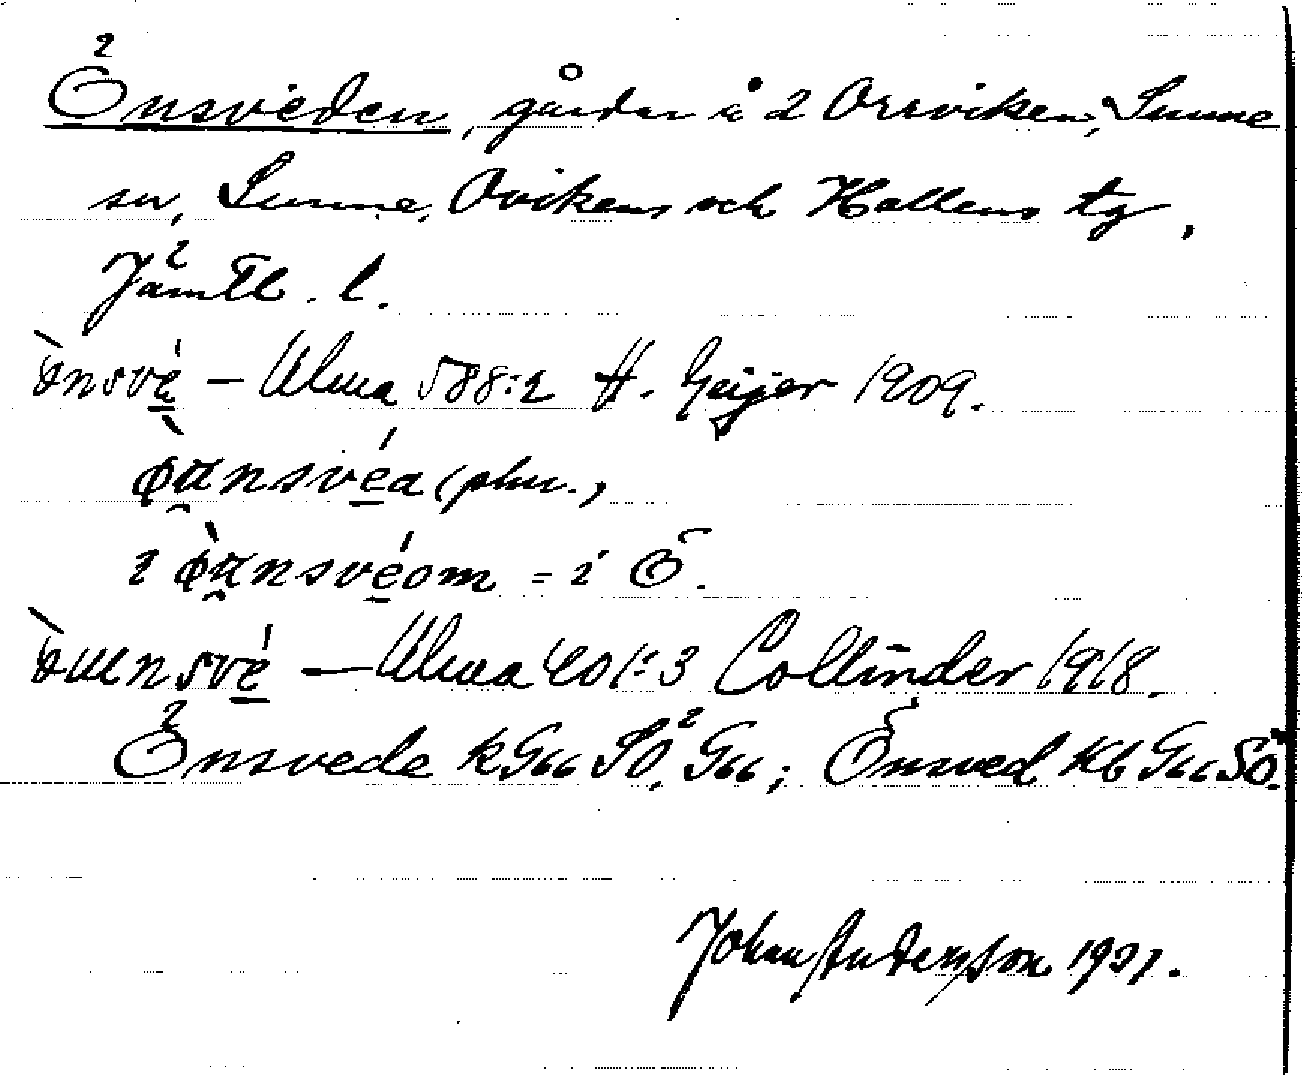 Önsveden, gårdar i 2 Orrviken, Sunne
sn, Sunne, Ovikens och Hallens tg,
Jämtl. l.
ònsvé̱ – Ulma 588:2 H. Geijer 1909.
ɸ̀ansvé̱a (plur.)
i ɸ̀ansvé̱om = i Ö.
– Ulma 401:3 Collinder 1918.
Önsvede kGss SO, Gss; Önsved Kb Gss SO.
Johan Andersson 1921.